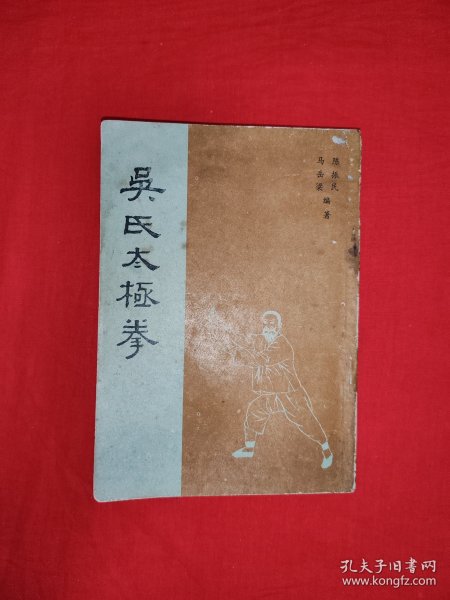 吳氏太極拳
陈振民
马岳梁
编著
孔夫子旧书网
www.kongfz.com